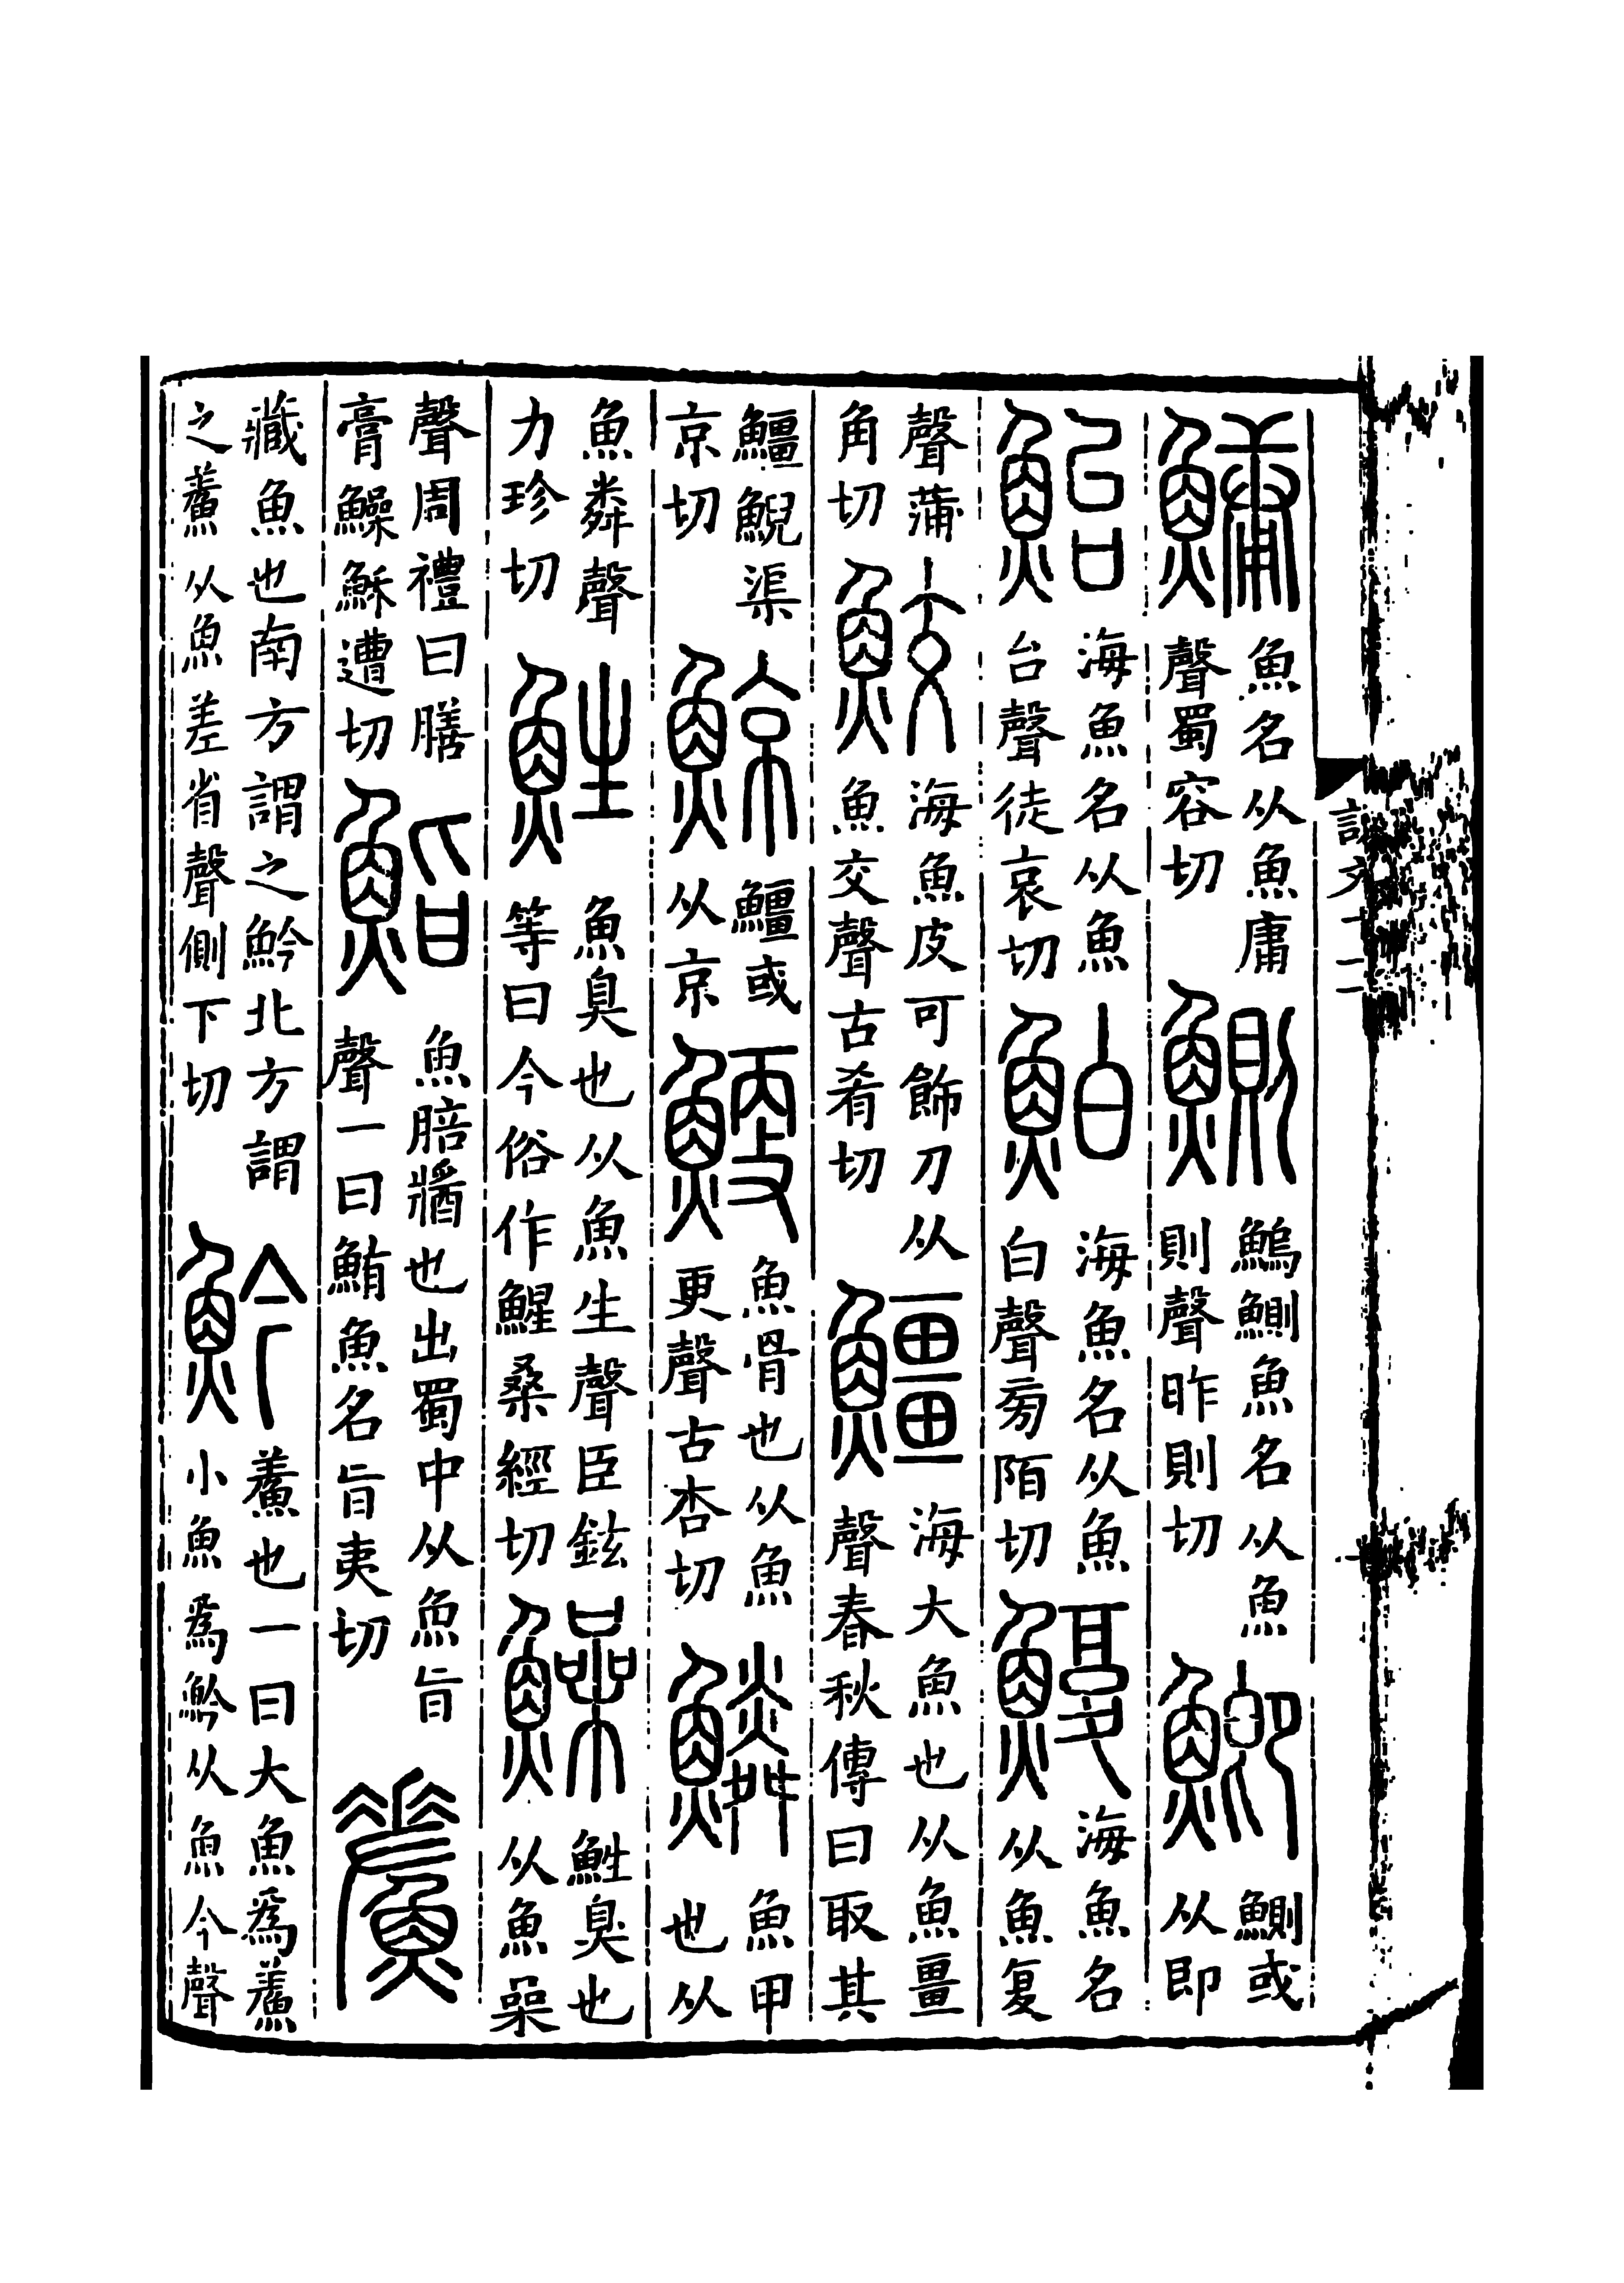 說文
鱅魚名从魚庸聲蜀容切鰂鰞鰂魚名从魚則聲昨則切鯽鰂或从即
鮐海魚名从魚台聲徒哀切鮊海魚名从魚白聲旁陌切鰒海魚名从魚复
聲蒲角切鮫海魚皮可飾刀从魚交聲古肴切䲔海大魚也从魚畺聲春秋傳曰取其
䲔鯢渠京切鯨䲔或从京鯁魚骨也从魚更聲古杏切鱗魚甲也从
魚粦聲力珍切鮏魚臭也从魚生聲臣鉉等曰今俗作鯹桑經切鱢鮏臭也从魚喿
聲周禮曰膳膏鱢穌遭切鮨魚䏽醬也出蜀中从魚旨聲一曰鮪魚名旨夷切鮺
藏魚也南方謂之䰼北方謂之鮺从魚差省聲側下切䰼鮺也一曰大魚爲鮺小魚爲䰼从魚今聲